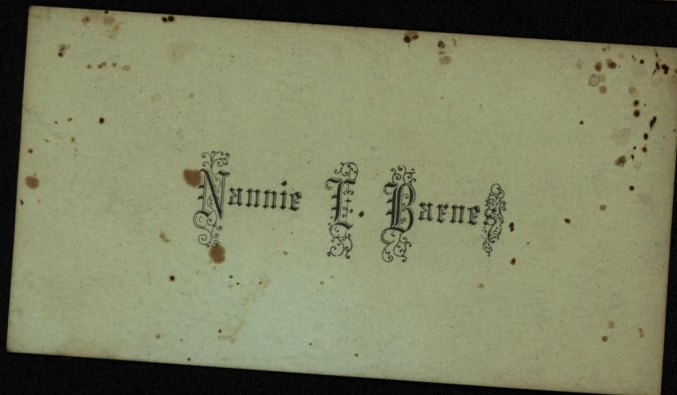 Nannie E. Barnes.